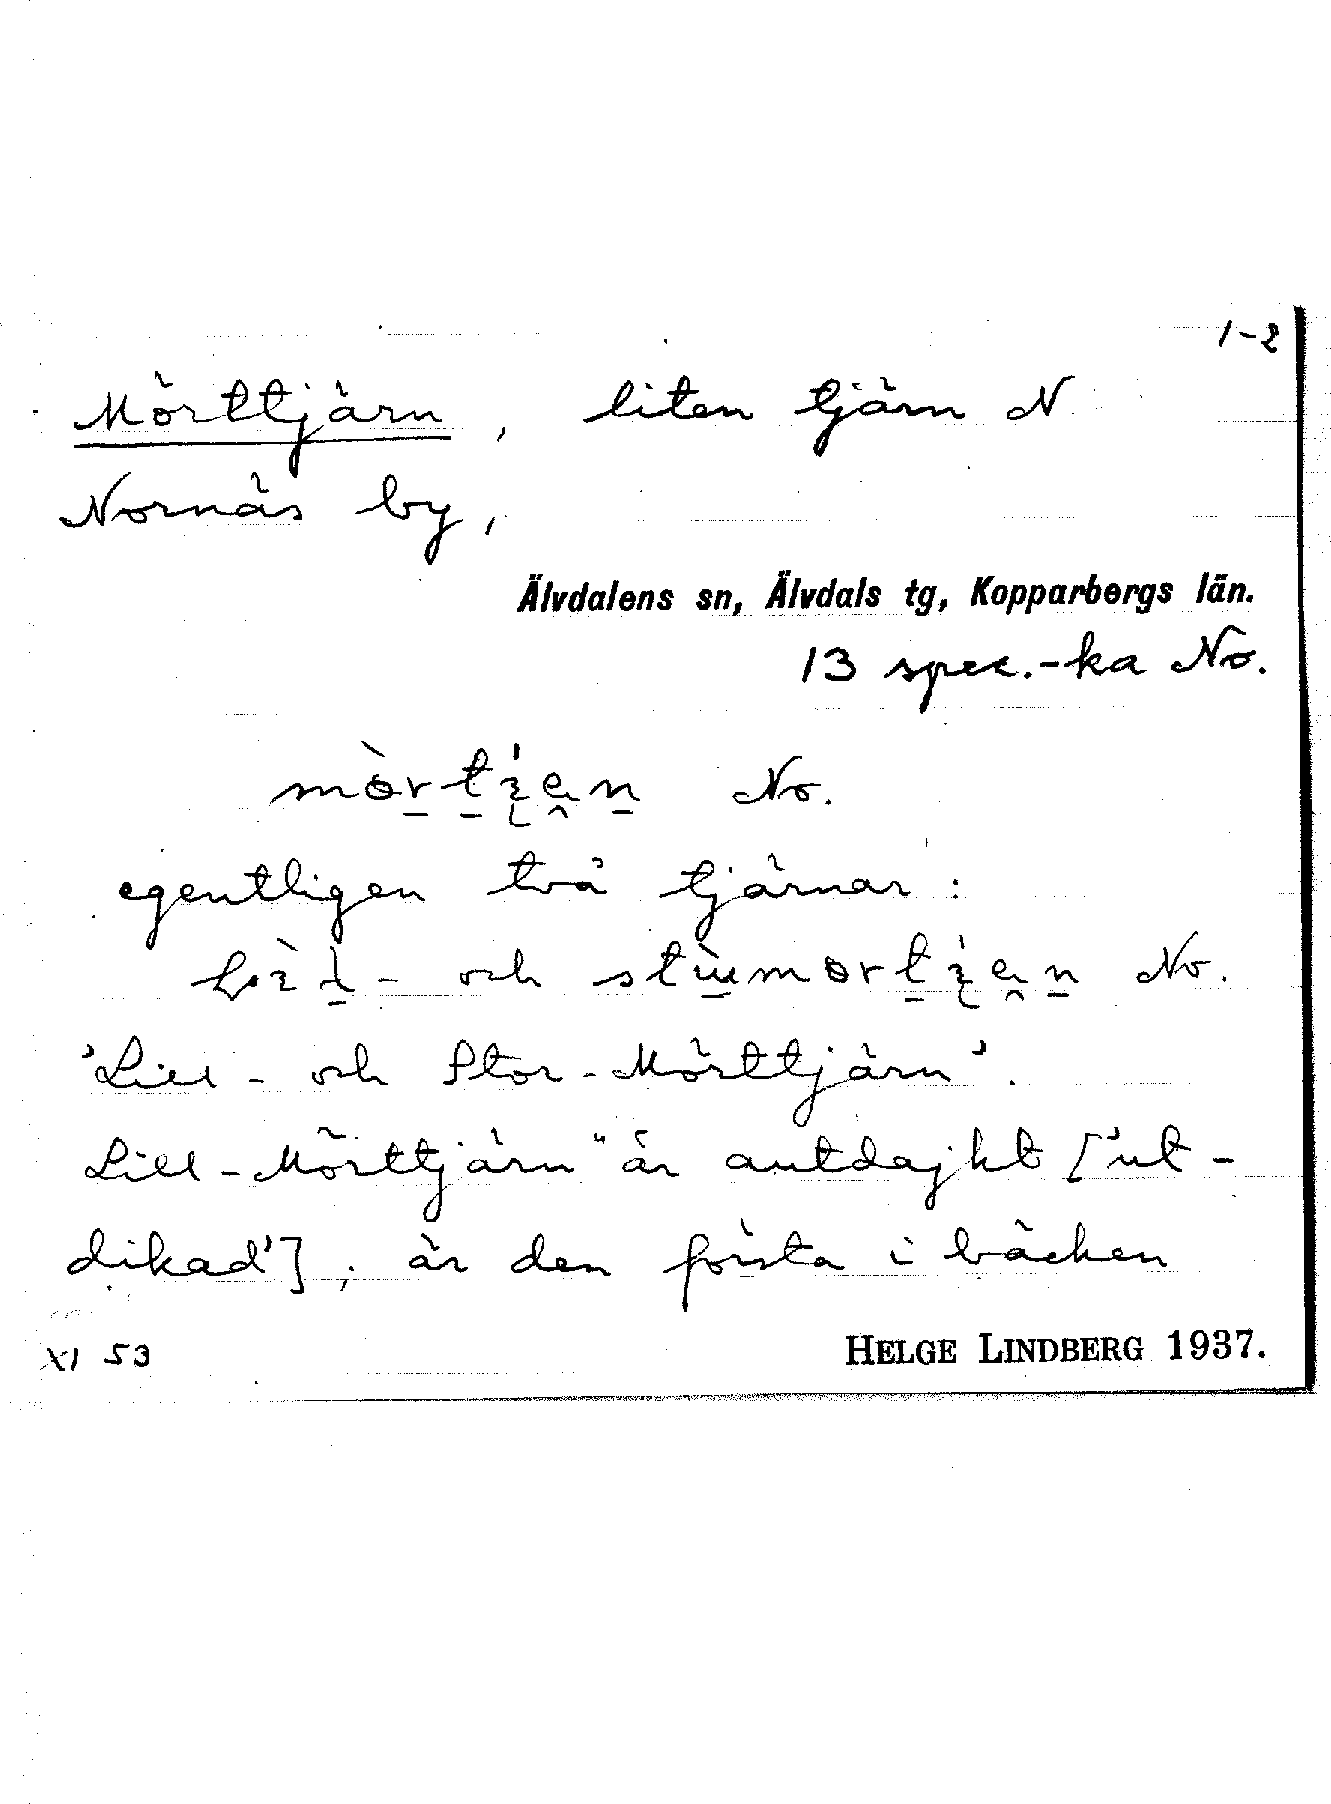 1-2
Mörttjärn, liten tjärn N
Nornäs by,
Älvdalens sn, Älvdals tg, Kopparbergs län.
13 spec.-ka No.
No.
egentligen två tjärnar:
och No.
'Lill- och Stor-Mörttjärn'.
Lill-Mörttjärn "är autdajkt ['ut-
dikad'], är den första i bäcken
XI 53
HELGE LINDBERG 1937.